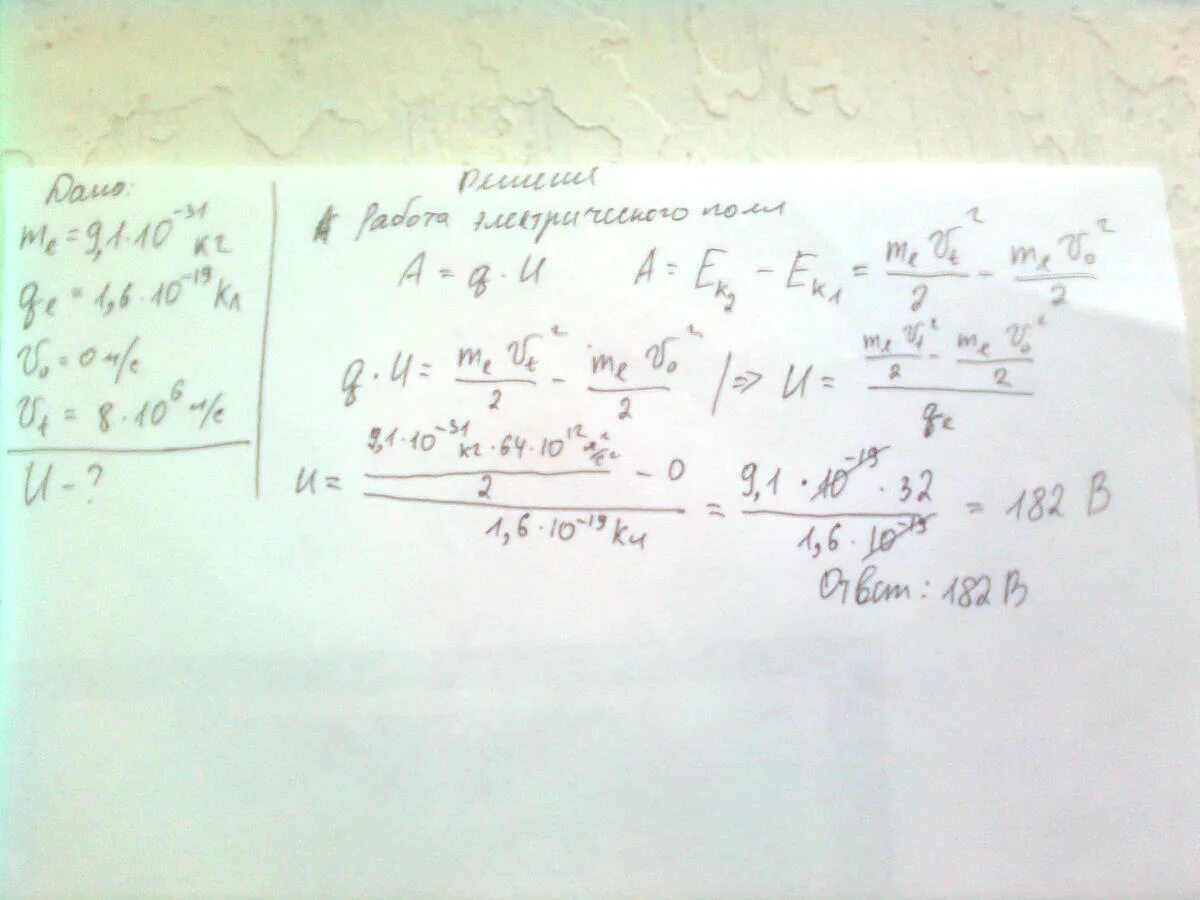 Дано:
mₑ = 9,1·10⁻³¹ кг
qₑ = 1,6·10⁻¹⁹ Кл
v₀ = 0 м/с
vₜ = 8·10⁶ м/с
U - ?
Решения
Работа электрического поля
A = q·U A = Eк₂ - Eк₁ = mₑvₜ²/2 - mₑv₀²/2
q·U = mₑvₜ²/2 - mₑv₀²/2 |=> U = (mₑvₜ²/2 - mₑv₀²/2)/qₑ
U = (9,1·10⁻³¹ кг·64·10¹² м²/с²/2 - 0)/(1,6·10⁻¹⁹ Кл) = (9,1·10⁻¹⁹·32)/(1,6·10⁻¹⁹) = 182 В
Ответ: 182 В